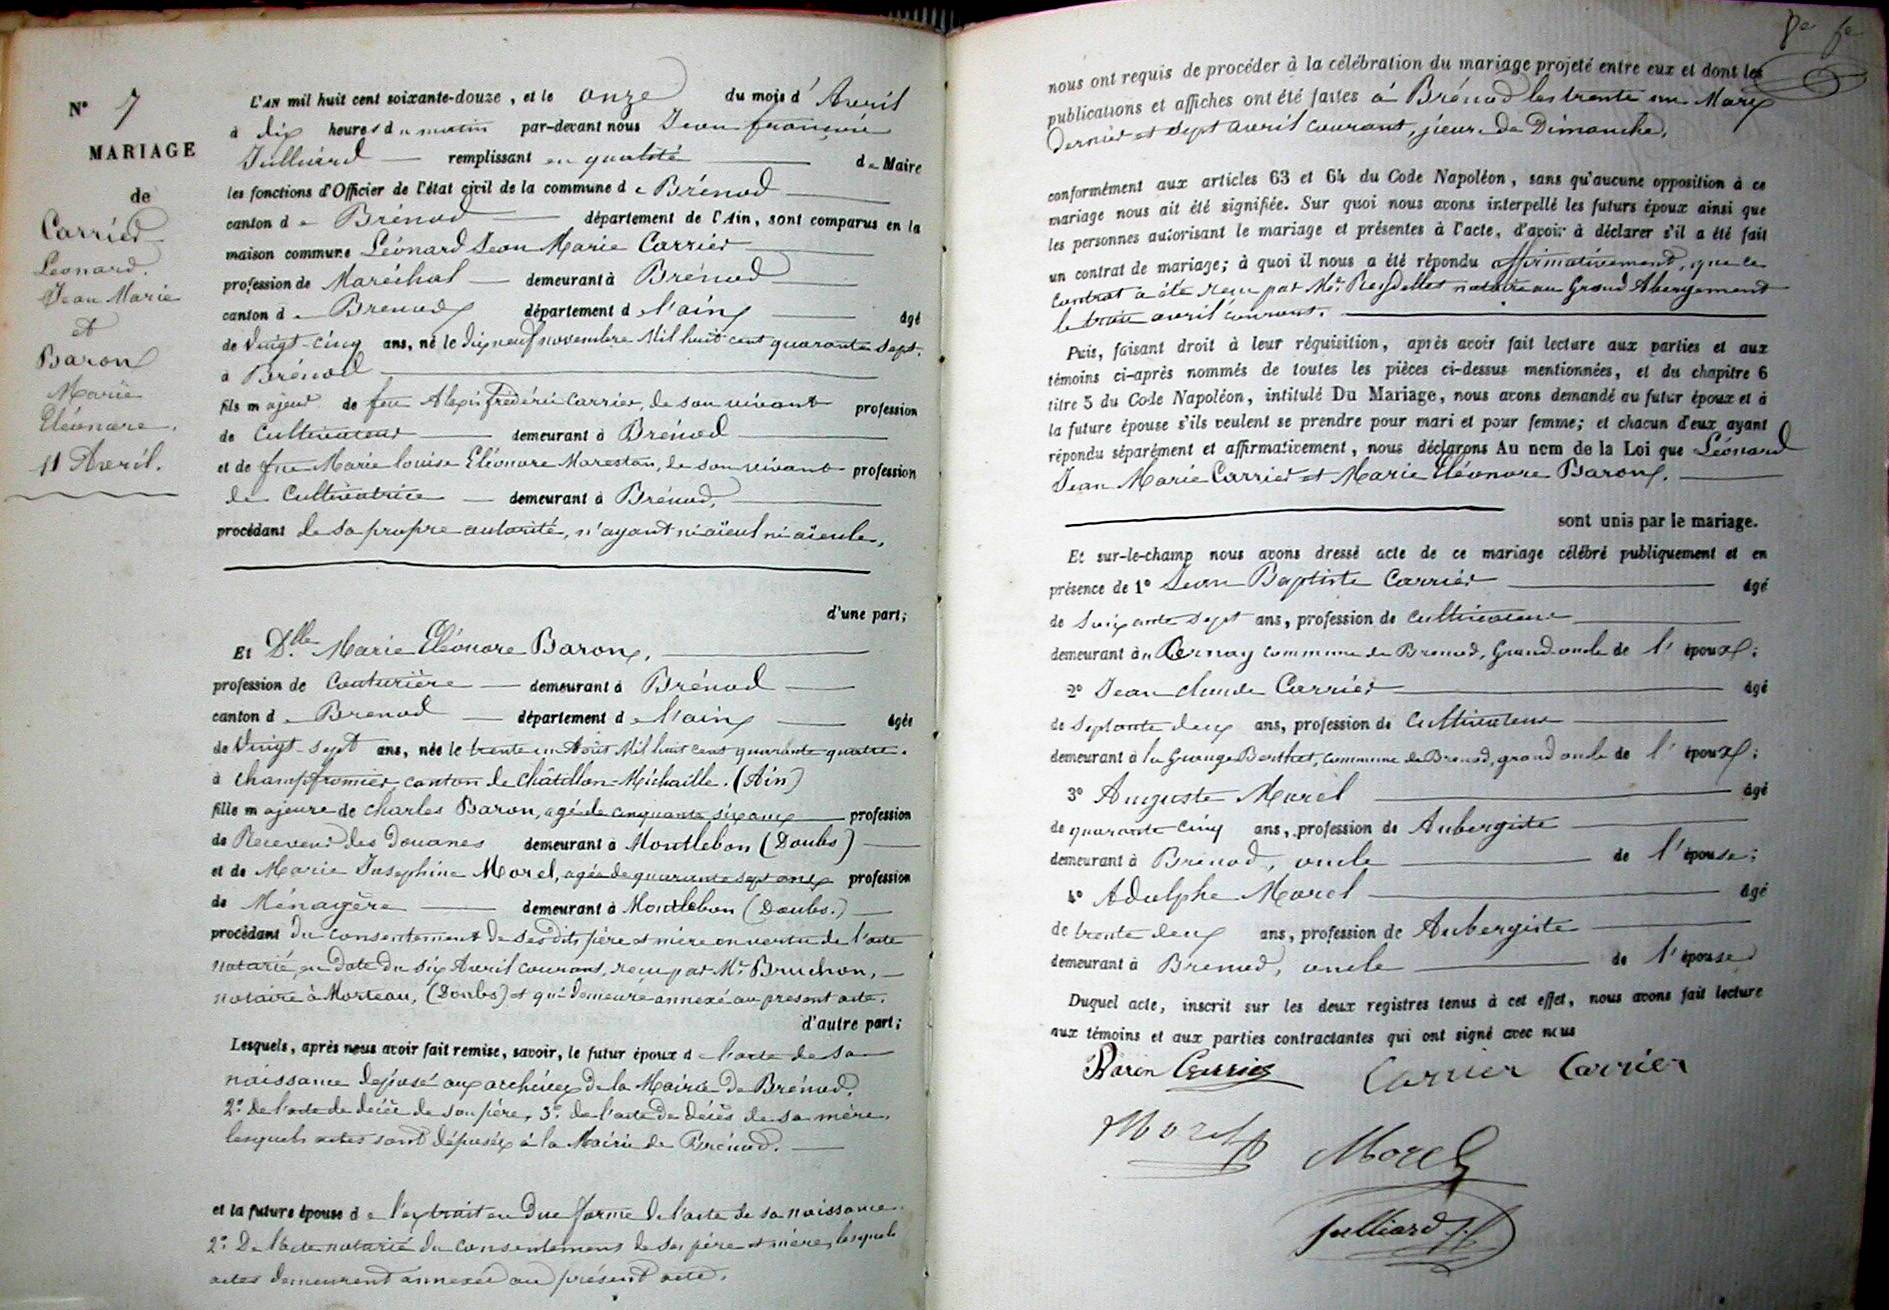 N° 7
MARIAGE
de
Carrier
Léonard.
Jean Marie
et
Baron
Marie
Eléonore.
11 Avril.
L'AN mil huit cent soixante-douze, et le onze du mois d'Avril
à dix heures du matin par-devant nous Jean françois
Julliard remplissant en qualité de Maire
les fonctions d'Officier de l'état civil de la commune de Brénod
canton de Brénod département de l'Ain, sont comparus en la
maison commune Léonard Jean Marie Carrier
profession de Maréchal demeurant à Brénod
canton de Brenod département de l'ain âgé
de vingt-cinq ans, né le dix neuf novembre Mil huit cent quarante sept.
à Brénod
fils majeur de feu Alexis frédéric Carrier, de son vivant profession
de Cultivateur demeurant à Brénod
et de feue Marie louise Eléonore Marestan, de son vivant profession
de Cultivatrice demeurant à Brénod,
procédant de sa propre autorité, n'ayant ni aïeul ni aïeule,
d'une part;
Et Dlle Marie Eléonore Baron,
profession de Couturière demeurant à Brénod
canton de Brenod département de l'ain âgée
de vingt-sept ans, née le trente un Août Mil huit cent quarante quatre.
à Champfromier canton de Châtillon-Michaille. (Ain)
fille majeure de Charles Baron, agé de cinquante six ans profession
de Receveur des Douanes demeurant à Montlebon (Doubs)
et de Marie Josephine Morel, agée de quarante sept ans profession
de Ménagère demeurant à Montlebon (Doubs.)
procédant du consentement de ses dits père et mère en vertu de l'acte
notarié en date du six Avril courant, reçu par Me Bruchon,
notaire à Morteau, (Doubs) et qui demeure annexé au present acte.
d'autre part;
Lesquels, après nous avoir fait remise, savoir, le futur époux de l'acte de sa
naissance déposé aux archives de la Mairie de Brénod.
2° de l'acte de décès de son père, 3° de l'acte de décès de sa mère,
lesquels actes sont déposés à la Mairie de Brénod.
et la future épouse de l'extrait en due forme de l'acte de sa naissance.
2° De l'acte notarié du consentement de ses père et mère, lesquels
actes demeurent annexés au présent acte.
nous ont requis de procéder à la célébration du mariage projeté entre eux et dont les
publications et affiches ont été faites à Brénod les trente un Mars
dernier et sept avril courant, jour de Dimanche,
conformément aux articles 63 et 64 du Code Napoléon, sans qu'aucune opposition à ce
mariage nous ait été signifiée. Sur quoi nous avons interpellé les futurs époux ainsi que
les personnes autorisant le mariage et présentes à l'acte, d'avoir à déclarer s'il a été fait
un contrat de mariage; à quoi il nous a été répondu affirmativement, que ce
contrat a été reçu par Me Reydellet notaire au Grand Abergement
le trois avril courant.
Puis, faisant droit à leur réquisition, après avoir fait lecture aux parties et aux
témoins ci-après nommés de toutes les pièces ci-dessus mentionnées, et du chapitre 6
titre 5 du Code Napoléon, intitulé Du Mariage, nous avons demandé au futur époux et à
la future épouse s'ils veulent se prendre pour mari et pour femme; et chacun d'eux ayant
répondu séparément et affirmativement, nous déclarons Au nom de la Loi que Léonard
Jean Marie Carrier et Marie Eléonore Baron,
sont unis par le mariage.
Et sur-le-champ nous avons dressé acte de ce mariage célébré publiquement et en
présence de 1° Jean Baptiste Carrier âgé
de soixante sept ans, profession de Cultivateur
demeurant à commune de Brenod, Grand oncle de l'époux;
2° Jean claude Carrier âgé
de septante deux ans, profession de Cultivateur
demeurant à la Grange Berthet, commune de Brenod, grand oncle de l'époux;
3° Auguste Morel âgé
de quarante cinq ans, profession de Aubergiste
demeurant à Brénod, oncle de l'épouse;
4° Adolphe Morel âgé
de trente deux ans, profession de Aubergiste
demeurant à Brenod, oncle de l'épouse
Duquel acte, inscrit sur les deux registres tenus à cet effet, nous avons fait lecture
aux témoins et aux parties contractantes qui ont signé avec nous
Baron Carrier Carrier Carrier
Morel Morel
Julliard